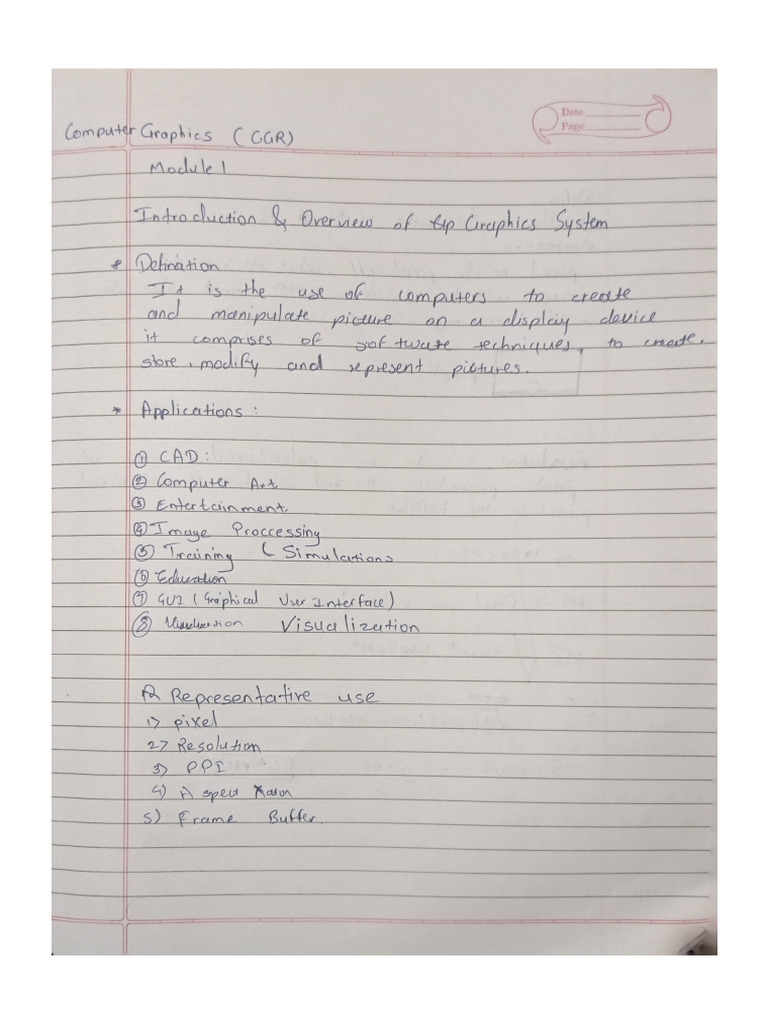 Date
Page
Computer Graphics (CGR)
Module 1
Introduction & Overview of Graphics System
* Defination
It is the use of computers to create
and manipulate picture on a display device
it comprises of software techniques, to create,
store, modify and represent pictures.
* Applications :
① CAD :
② Computer Art
③ Entertainment
④ Image Proccessing
⑤ Training Simulations
⑥ Education
⑦ GUI (Graphical User Interface)
⑧ Visualization
Representative use
1> pixel
2> Resolution
3) PPI
4) Aspect
5) Frame Buffer.